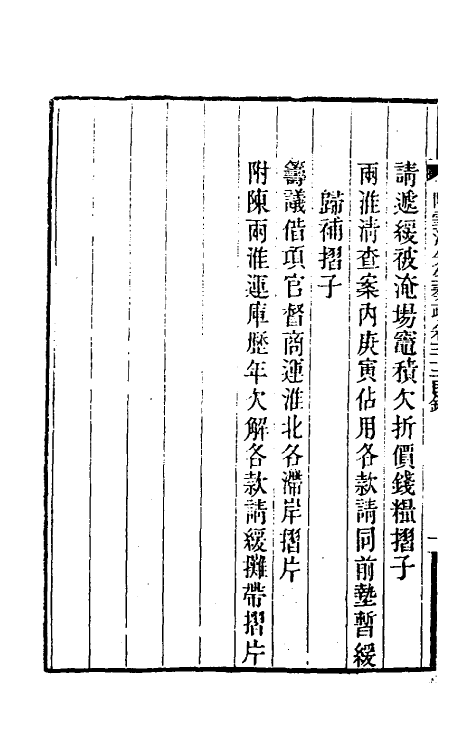 請遞緩被淹場竈積欠折價錢糧摺子
兩淮清查案內庚寅佔用各款請同前墊暫緩
歸補摺子
籌議借項官督商運淮北各滯岸摺片
附陳兩淮運庫歷年欠解各款請緩攤帶摺片